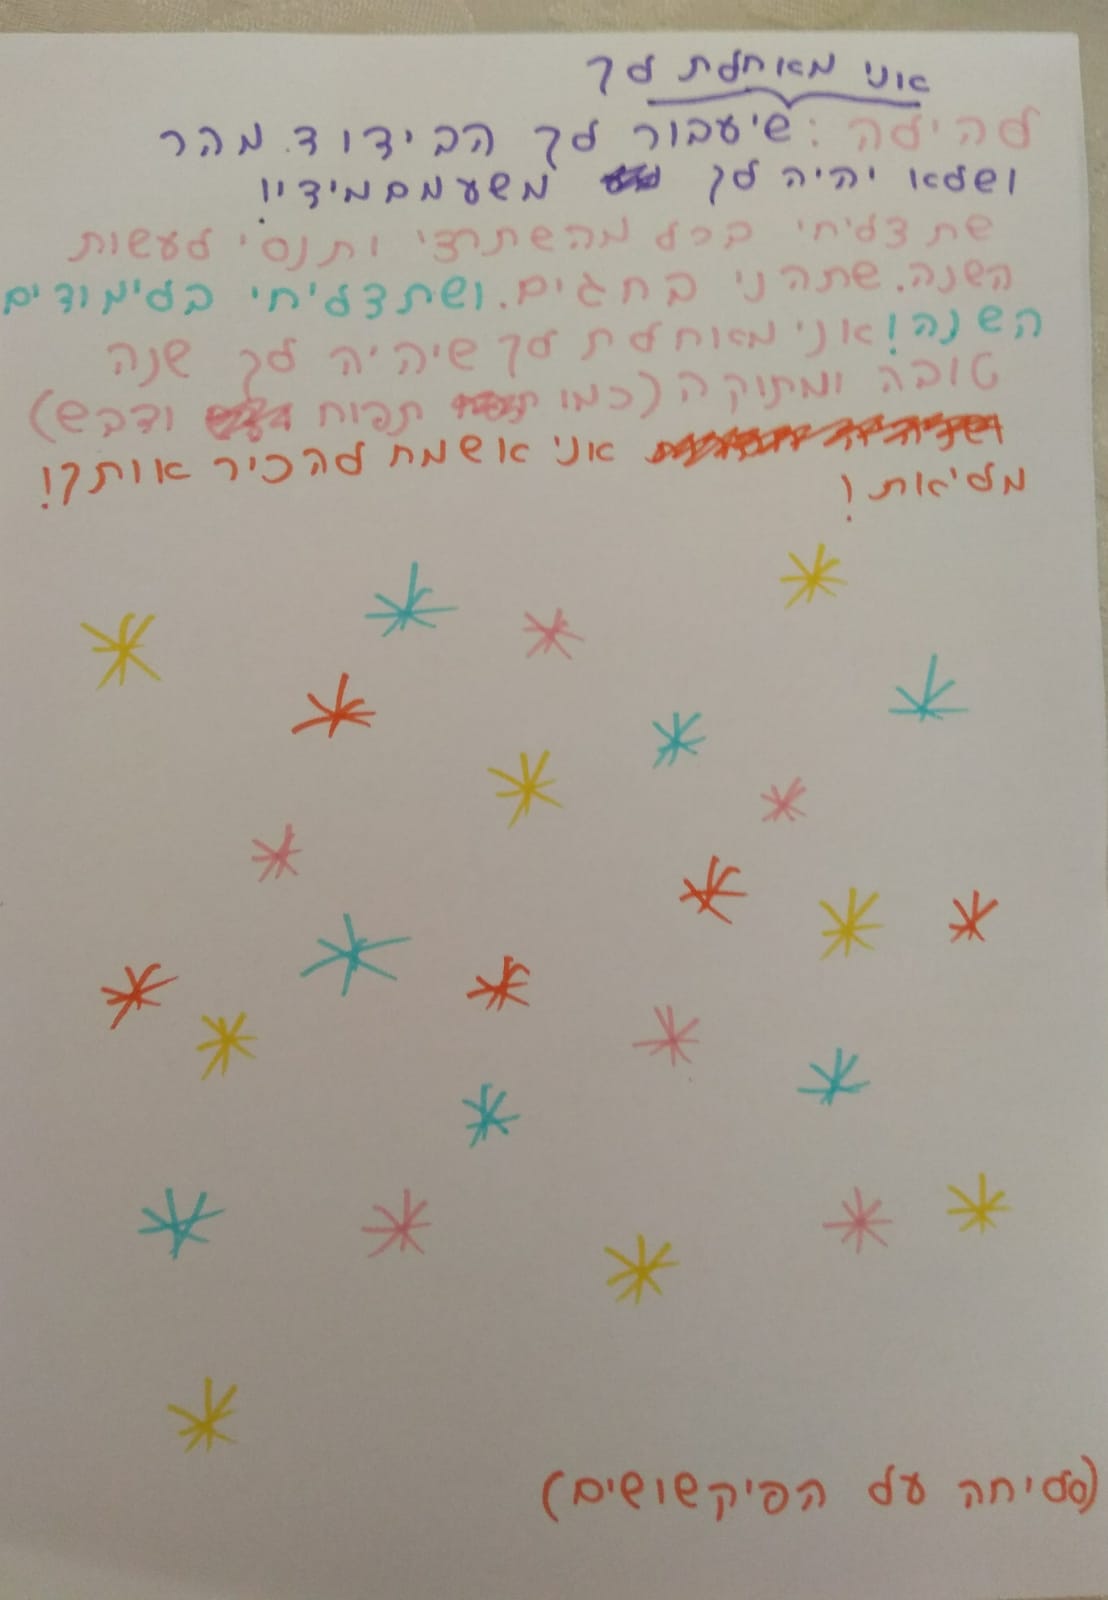 אני מאוחלת לך
להילה: שיעבור לך הבידוד מהר
ושלא יהיה לך משעמםמידיי!
שתצליחי בכל מהשתרצי ותנסי לעשות
השנה. שתהני בחגים. ושתצליחי בלימודים
השנה! אני מאוחלת לך שיהיה לך שנה
טובה ומתוקה (כמו תפוח ודבש)
אני אשמח להכיר אותך!
מליאות!
(סליחה על הפיקשושים)